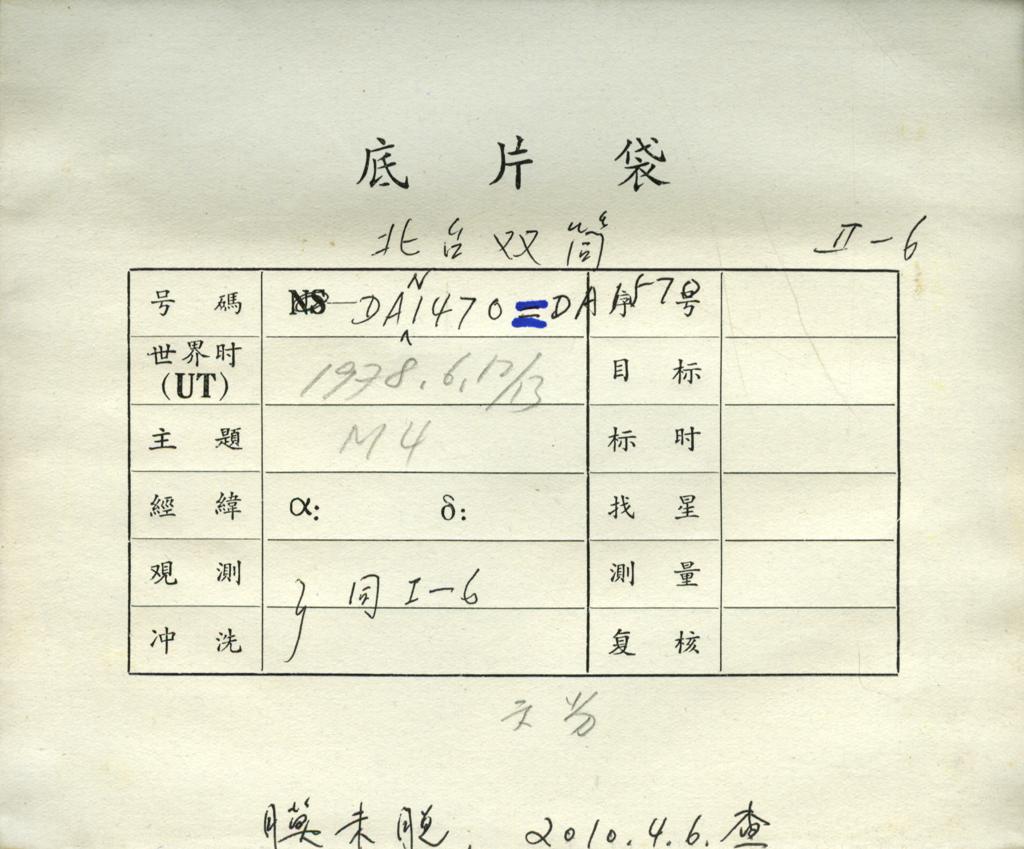 底片袋
北台双筒 II-6
号碼 NS DA1470=DA1570 序号
N
世界时 (UT) 1978.6.12/13 目标
主題 M4 标时
經緯 α: δ: 找星
观測 测量
} 同 I-6
冲洗 复核
膜未脱. 2010.4.6.查